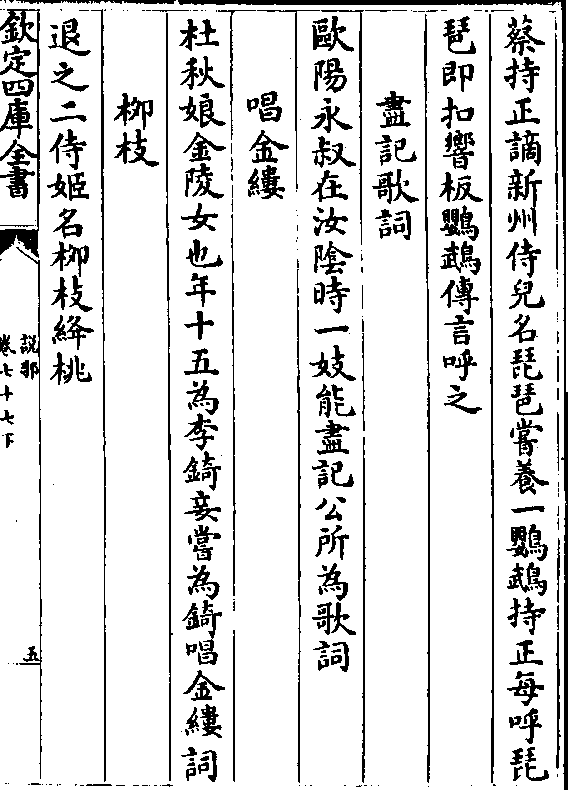 蔡持正謫新州侍兒名琵琶嘗養一鸚鵡持正每呼琵
琶即扣響板鸚鵡傳言呼之
盡記歌詞
歐陽永叔在汝陰時一妓能盡記公所為歌詞
唱金縷
杜秋娘金陵女也年十五為李錡妾嘗為錡唱金縷詞
柳枝
退之二侍姬名柳枝絳桃
欽定四庫全書
說郛
卷七十七下
五